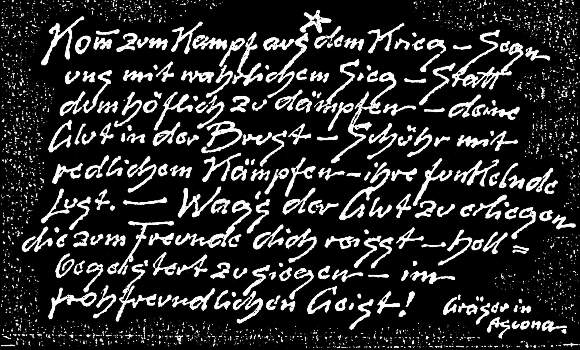 Kom̄ zum Kampf aus dem Krieg – Segn
uns mit wahrlichem Sieg – Statt
dumhöflich zu dämpfen – deine
Glut in der Brust – Schühr mit
redlichem Kämpfen – ihre funkelnde
Lust. — Wag's der Glut zu erliegen
die zum Freunde dich reisst – hell=
begeistert zu siegen – im
frohfreundlichen Geist! Gräser in
Ascona